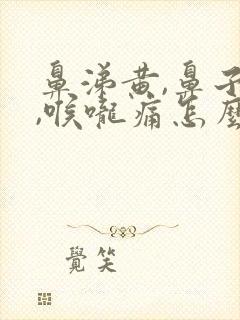 鼻涕黄,鼻子
,喉嚨痛怎麼
覺笑